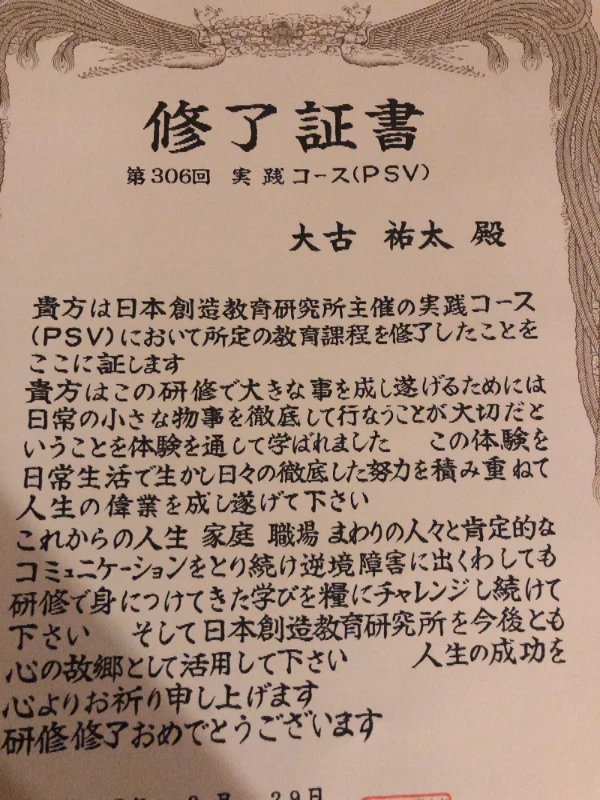 修了証書
第306回 実践コース(PSV)
大古 祐太 殿
貴方は日本創造教育研究所主催の実践コース
(PSV)において所定の教育課程を修了したことを
ここに証します
貴方はこの研修で大きな事を成し遂げるためには
日常の小さな物事を徹底して行なうことが大切だと
いうことを体験を通して学ばれました この体験を
日常生活で生かし日々の徹底した努力を積み重ねて
人生の偉業を成し遂げて下さい
これからの人生 家庭 職場 まわりの人々と肯定的な
コミュニケーションをとり続け逆境障害に出くわしても
研修で身につけてきた学びを糧にチャレンジし続けて
下さい そして日本創造教育研究所を今後とも
心の故郷として活用して下さい 人生の成功を
心よりお祈り申し上げます
研修修了おめでとうございます
月 29日